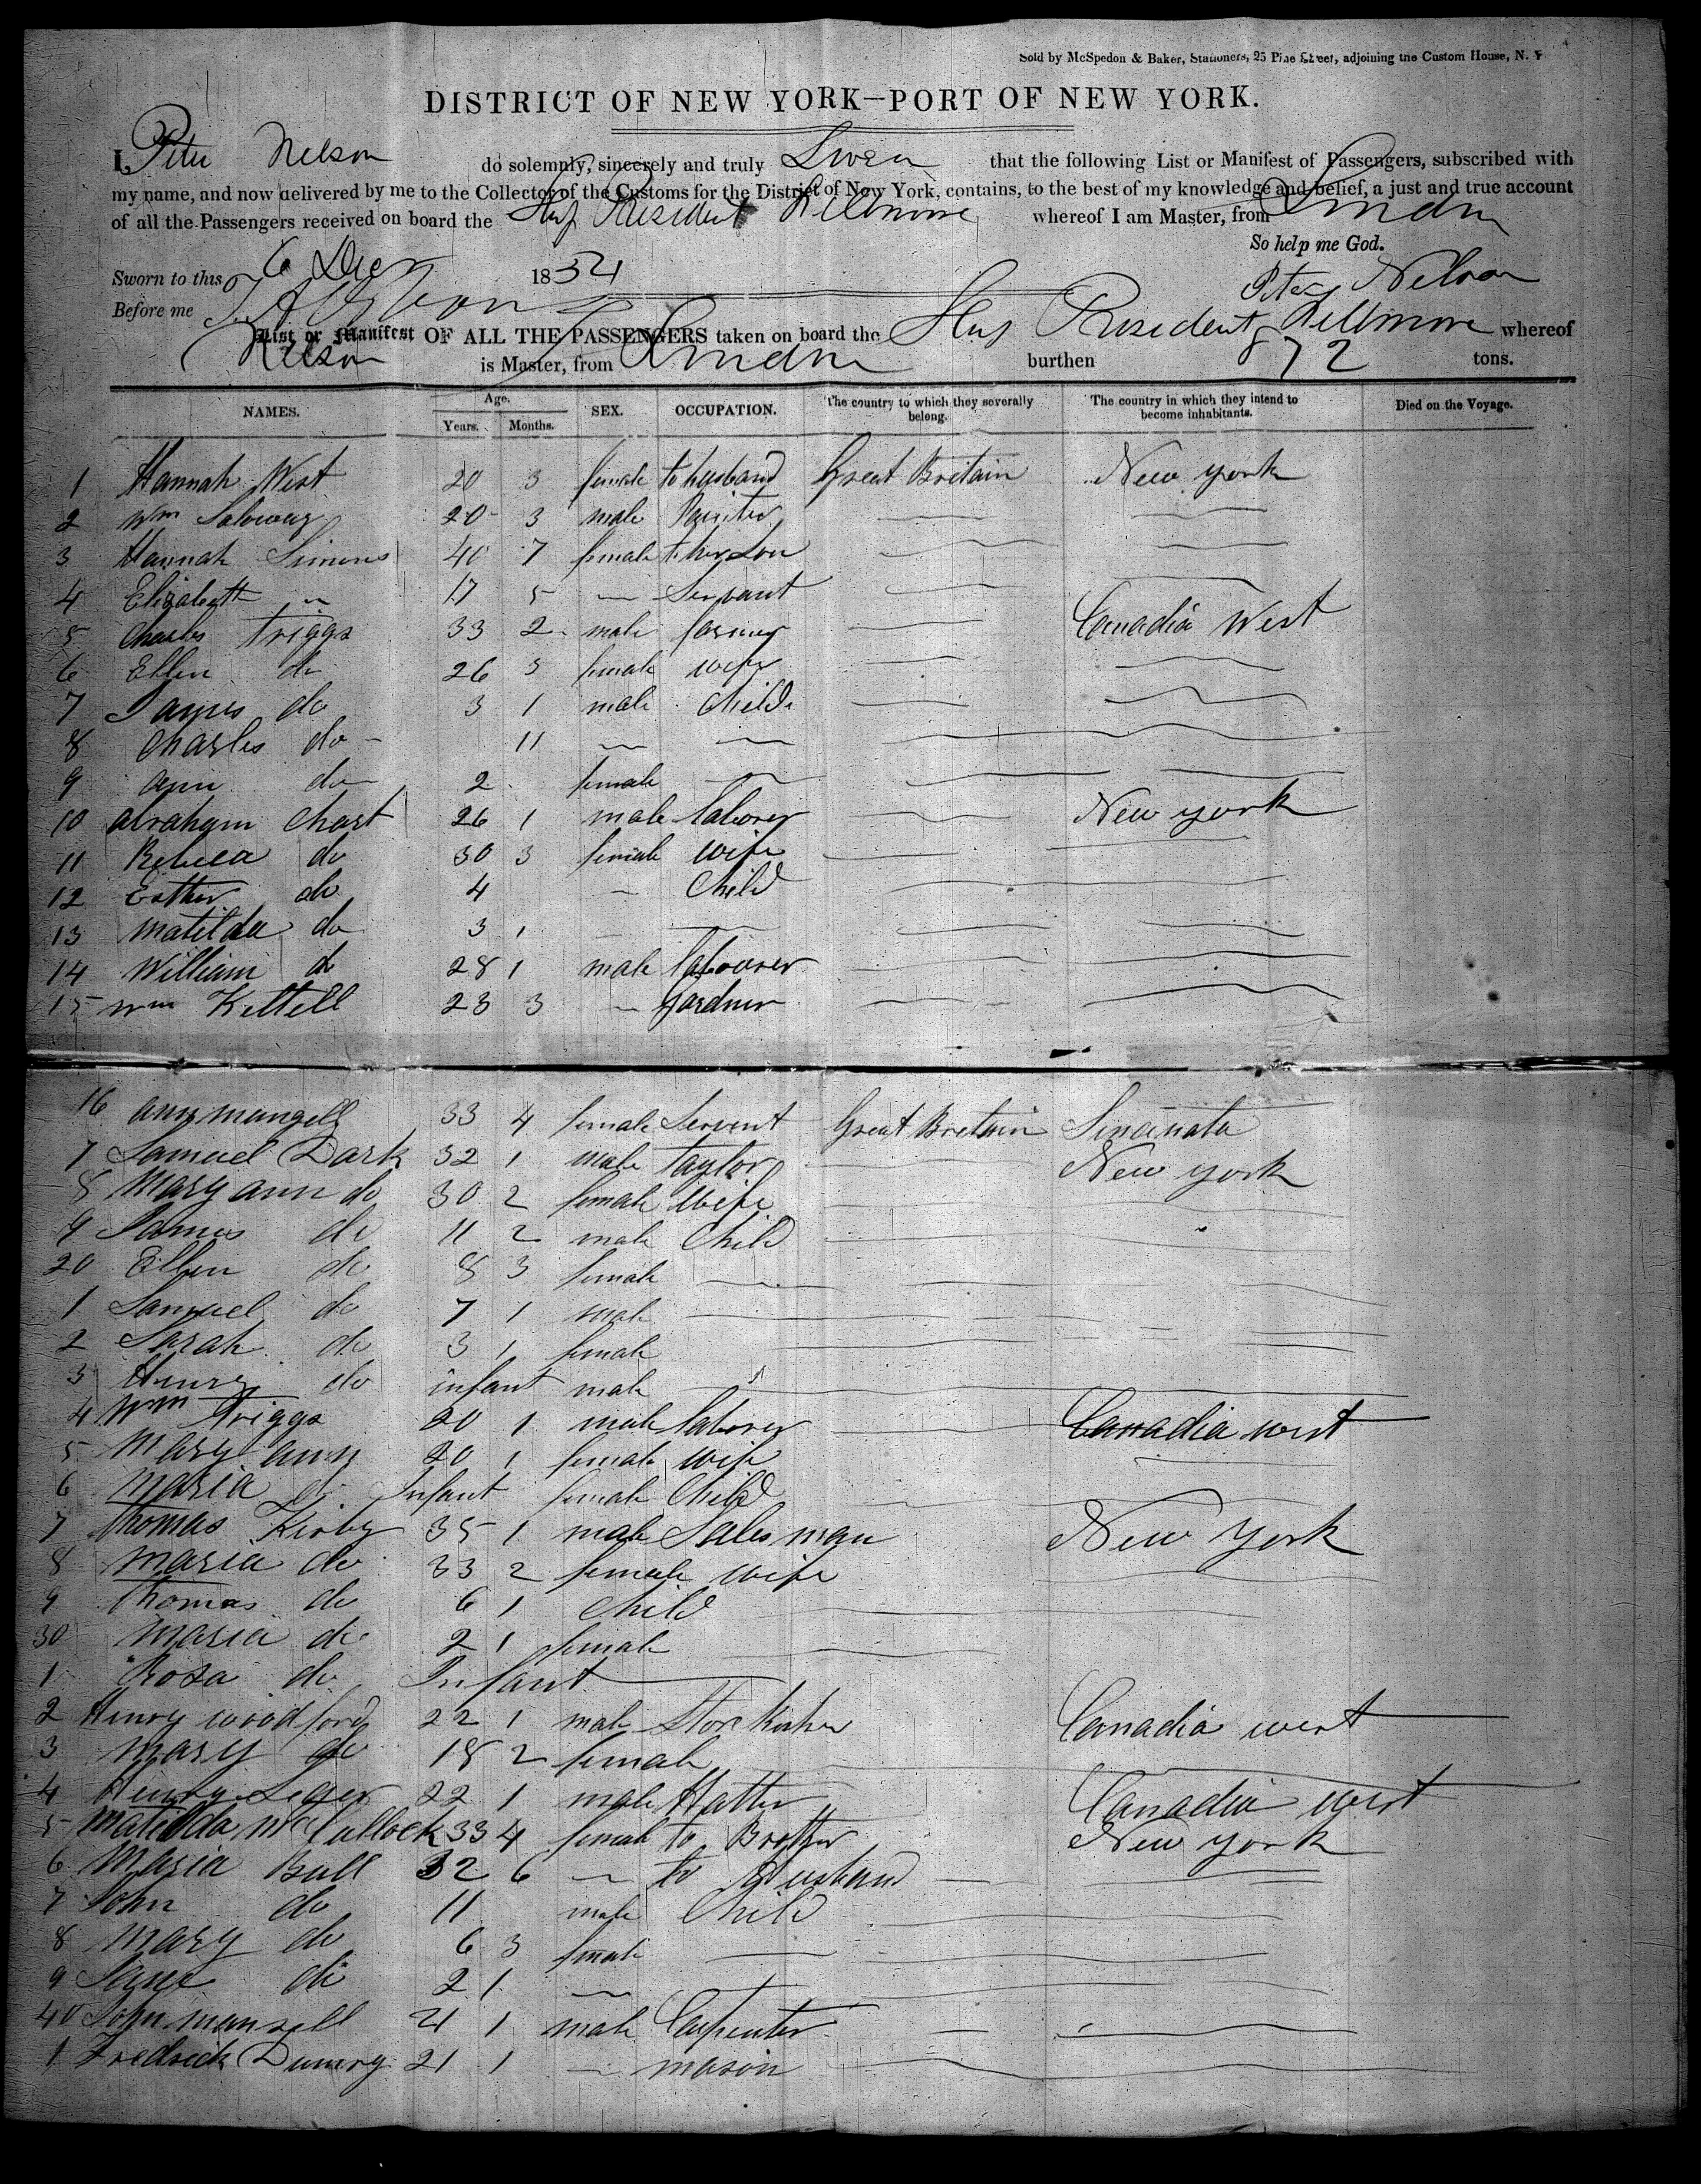 Sold by McSpedon & Baker, Stationers, 25 Pine Street, adjoining the Custom House, N. Y
DISTRICT OF NEW YORK—PORT OF NEW YORK.
I, Peter Nelson do solemnly, sincerely and truly Swear that the following List or Manifest of Passengers, subscribed with
my name, and now delivered by me to the Collector of the Customs for the District of New York, contains, to the best of my knowledge and belief, a just and true account
of all the Passengers received on board the Ship President Fillmore whereof I am Master, from London
So help me God.
Sworn to this 6 Decr 1854 Peter Nelson
Before me
List or Manifest OF ALL THE PASSENGERS taken on board the Ship President Fillmore whereof
Nelson is Master, from London burthen 872 tons.
NAMES. Age. Years. Months. SEX. OCCUPATION. The country to which they severally belong. The country in which they intend to become inhabitants. Died on the Voyage.
1 Hannah West 20 3 female to husband Great Britain New york
2 Wm Saloway 20 3 male Painter
3 Hannah Simms 40 7 female to her Son
4 Elizabeth 〃 17 5 — Servant
5 Charles Triggs 33 2 male farmer Canadia West
6 Ellen do 26 3 female wife
7 James do 3 1 male child
8 Charles do 11 — —
9 ann do 2 female —
10 abraham Chart 26 1 male laborer New york
11 Rebeca do 30 3 female wife
12 Esther do 4 — Child
13 matilda do 3 1
14 William do 28 1 male labourer
15 Wm Kettell 23 3 — Gardner
16 ann mansell 33 4 female Servent Great Britain Sincinata
7 Samuel Dark 32 1 male taylor New york
8 Mary ann do 30 2 female wife
9 James do 11 2 male Child
20 Ellen do 8 3 female
1 Samuel do 7 1 male
2 Sarah do 3 1 female
3 Henry do infant male
4 Wm Triggs 20 1 male laborer Canadia west
5 Mary ann 20 1 female wife
6 maria d Infant female Child
7 Thomas Kirby 35 1 male Sales man New york
8 maria do 33 2 female wife
9 Thomas do 6 1 Child
30 maria do 2 1 female
1 Rosa do Infant
2 Henry woodford 22 1 male Canadia west
3 mary do 18 2 female
4 Henry Leger 22 1 male Hatter Canadia west
5 Matilda mcCullock 33 4 female to Brother New york
6 Maria Bull 32 6 — to Husband
7 John do 11 male Child
8 mary do 6 3 female
9 Jane do 2 1 —
40 John mansell 21 1 male Carpenter
1 Fredrick 21 1 — mason